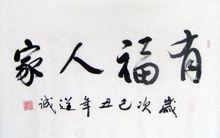 有福人家
歲次己丑年道誠